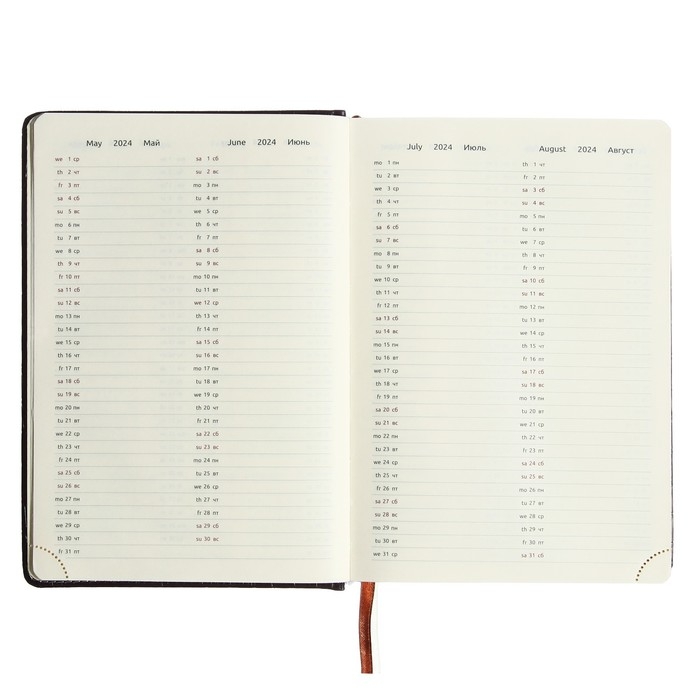 May 2024 Май
we 1 ср
th 2 чт
fr 3 пт
sa 4 сб
su 5 вс
mo 6 пн
tu 7 вт
we 8 ср
th 9 чт
fr 10 пт
sa 11 сб
su 12 вс
mo 13 пн
tu 14 вт
we 15 ср
th 16 чт
fr 17 пт
sa 18 сб
su 19 вс
mo 20 пн
tu 21 вт
we 22 ср
th 23 чт
fr 24 пт
sa 25 сб
su 26 вс
mo 27 пн
tu 28 вт
we 29 ср
th 30 чт
fr 31 пт
June 2024 Июнь
sa 1 сб
su 2 вс
mo 3 пн
tu 4 вт
we 5 ср
th 6 чт
fr 7 пт
sa 8 сб
su 9 вс
mo 10 пн
tu 11 вт
we 12 ср
th 13 чт
fr 14 пт
sa 15 сб
su 16 вс
mo 17 пн
tu 18 вт
we 19 ср
th 20 чт
fr 21 пт
sa 22 сб
su 23 вс
mo 24 пн
tu 25 вт
we 26 ср
th 27 чт
fr 28 пт
sa 29 сб
su 30 вс
July 2024 Июль
mo 1 пн
tu 2 вт
we 3 ср
th 4 чт
fr 5 пт
sa 6 сб
su 7 вс
mo 8 пн
tu 9 вт
we 10 ср
th 11 чт
fr 12 пт
sa 13 сб
su 14 вс
mo 15 пн
tu 16 вт
we 17 ср
th 18 чт
fr 19 пт
sa 20 сб
su 21 вс
mo 22 пн
tu 23 вт
we 24 ср
th 25 чт
fr 26 пт
sa 27 сб
su 28 вс
mo 29 пн
tu 30 вт
we 31 ср
August 2024 Август
th 1 чт
fr 2 пт
sa 3 сб
su 4 вс
mo 5 пн
tu 6 вт
we 7 ср
th 8 чт
fr 9 пт
sa 10 сб
su 11 вс
mo 12 пн
tu 13 вт
we 14 ср
th 15 чт
fr 16 пт
sa 17 сб
su 18 вс
mo 19 пн
tu 20 вт
we 21 ср
th 22 чт
fr 23 пт
sa 24 сб
su 25 вс
mo 26 пн
tu 27 вт
we 28 ср
th 29 чт
fr 30 пт
sa 31 сб